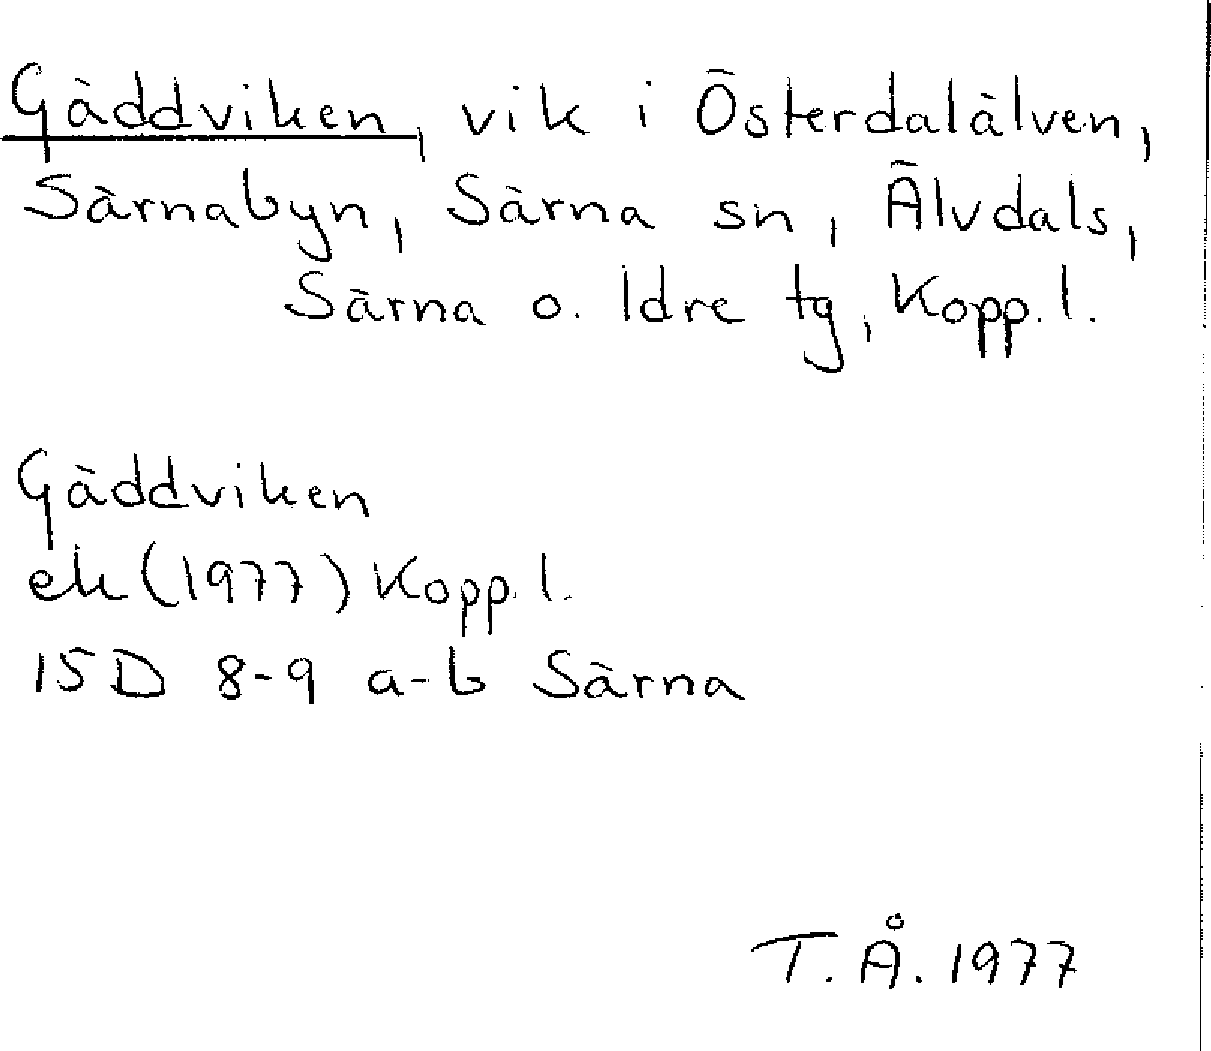 Gäddviken, vik i Österdalälven,
Särnabyn, Särna sn, Älvdals,
Särna o. Idre tg, Kopp. l.
Gäddviken
ek (1977) Kopp. l.
15 D 8-9 a-b Särna
T. Å. 1977